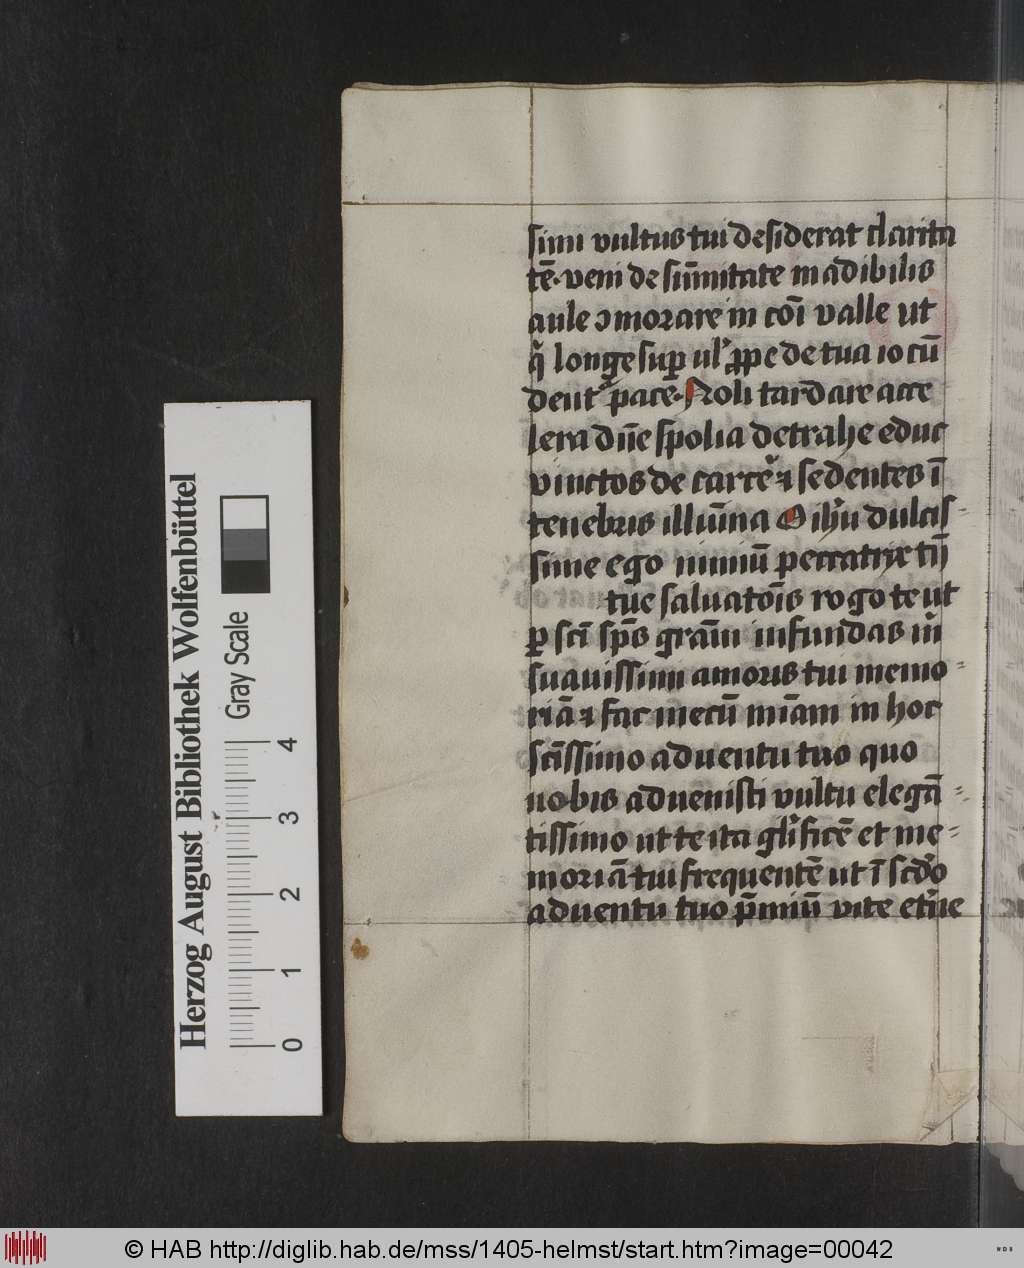 simi vultus tui desiderat clarita
tē. veni de sūmitate madibilis
aule ↄmorare in cōi valle ut
q̄ longe sup ul' ꝓpe de tua iocū
dent' pace. Noli tardare acce
lera dn̄e spolia detrahe educ
vinctos de carcē ⁊ sedentes ī
tenebris illiūina O ihū dulcis-
sime ego nimiū peccatrix
tue saluatōis rogo te ut
ꝑ scī sp̄s grām infundas in
suauissimi amoris tui memo-
riā ⁊ fac mecū miām in hoc
scīssimo aduentu tuo quo
nobis aduenisti vultu elegā-
tissimo ut te ita glīficē et me-
moriā tui frequentē ut ī scd̄o
aduentu tuo p̄miū vite et'ne
Herzog August Bibliothek Wolfenbüttel
Gray Scale
0 1 2 3 4
© HAB http://diglib.hab.de/mss/1405-helmst/start.htm?image=00042